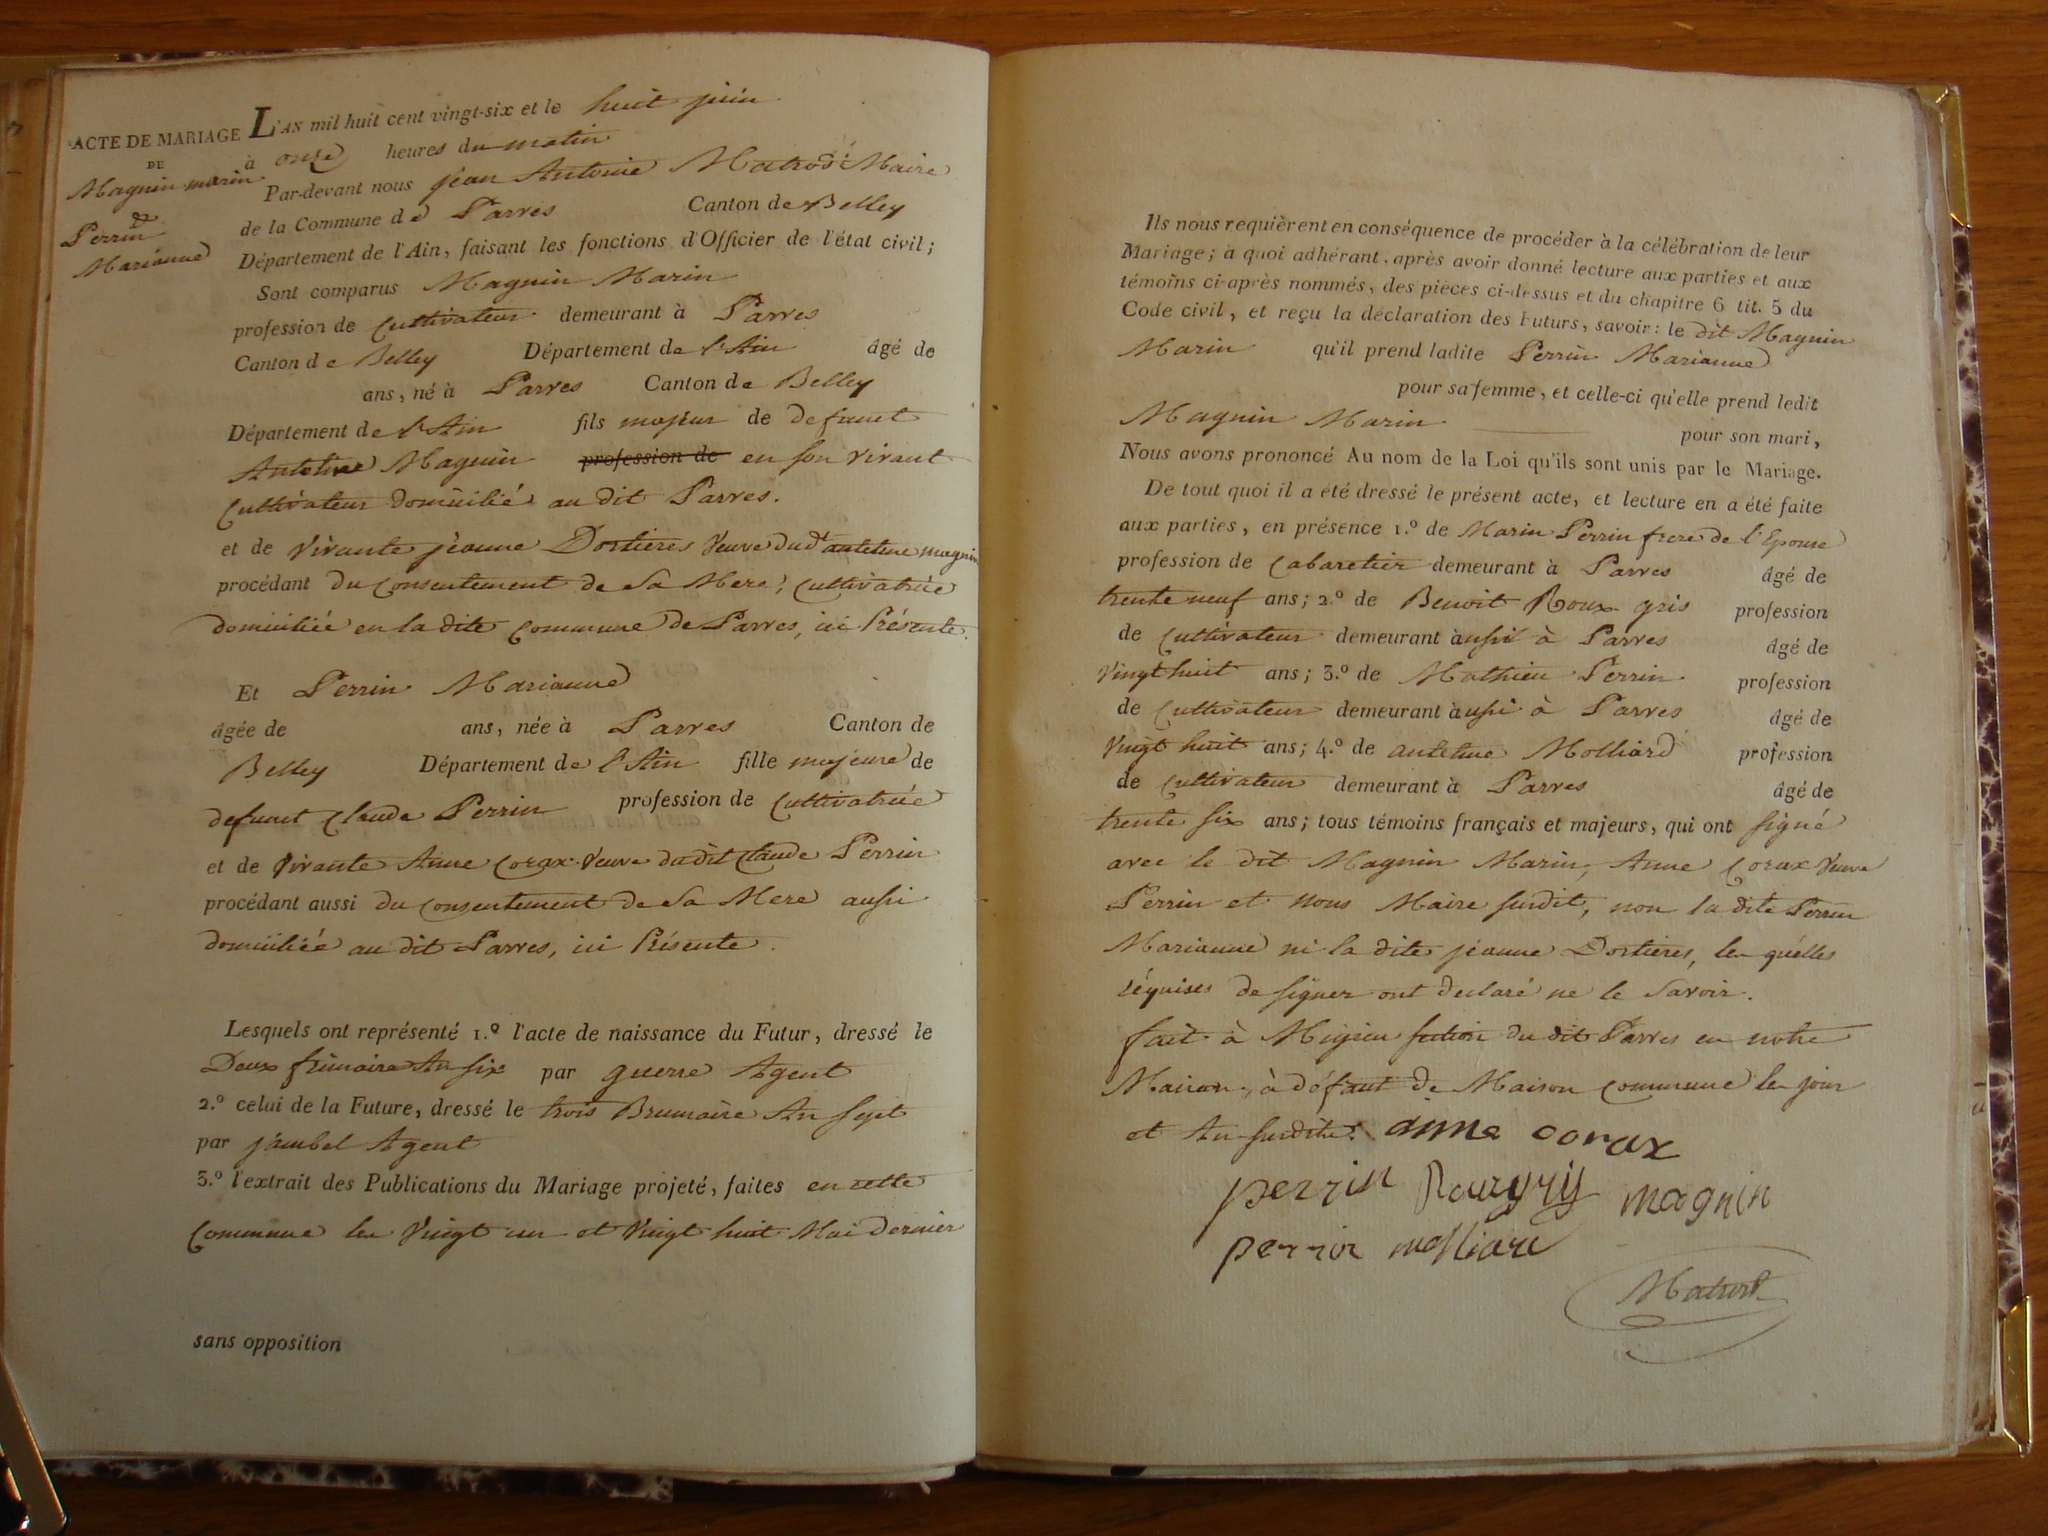 ACTE DE MARIAGE
DE
Magnin marin
&
Perrin
Marianne
L'AN mil huit cent vingt-six et le huit juin
à onze heures du matin
Par-devant nous jean Antoine Maire
de la Commune de Parves Canton de Belley
Département de l'Ain, faisant les fonctions d'Officier de l'état civil;
Sont comparus Magnin Marin
profession de Cultivateur demeurant à Parves
Canton de Belley Département de l'Ain âgé de
ans, né à Parves Canton de Belley
Département de l'Ain fils majeur de defunct
Antelme Magnin profession de en son vivant
Cultivateur domicilié au dit Parves.
et de vivante jeanne Dortieres veuve dud.t antelme magnin
procédant du Consentement de Sa Mere, Cultivatrice
domiciliée en la dite Commune de Parves, ici Présente.
Et Perrin Marianne
âgée de ans, née à Parves Canton de
Belley Département de l'Ain fille majeure de
defunct Claude Perrin profession de Cultivatrice
et de vivante Anne Corax veuve dudit Claude Perrin
procédant aussi du Consentement de Sa Mere aussi
domiciliée au dit Parves, ici Présente.
Lesquels ont représenté 1.º l'acte de naissance du Futur, dressé le
Deux frimaire An six par guerre Agent
2.º celui de la Future, dressé le trois Brumaire An sept
par jambel Agent
3.º l'extrait des Publications du Mariage projeté, faites en cette
Commune les Vingt un et Vingt huit Mai dernier
sans opposition
Ils nous requièrent en conséquence de procéder à la célébration de leur
Mariage; à quoi adhérant, après avoir donné lecture aux parties et aux
témoins ci-après nommés, des pièces ci-dessus et du chapitre 6 tit. 5 du
Code civil, et reçu la déclaration des Futurs, savoir: le dit Magnin
Marin qu'il prend ladite Perrin Marianne
pour sa femme, et celle-ci qu'elle prend ledit
Magnin Marin pour son mari,
Nous avons prononcé Au nom de la Loi qu'ils sont unis par le Mariage.
De tout quoi il a été dressé le présent acte, et lecture en a été faite
aux parties, en présence 1.º de Marin Perrin frere de l'Epouse
profession de Cabaretier demeurant à Parves âgé de
trente neuf ans; 2.º de Benoit Roux gris profession
de Cultivateur demeurant aussi à Parves âgé de
Vingt huit ans; 3.º de Mathieu Perrin profession
de Cultivateur demeurant aussi à Parves âgé de
Vingt huit ans; 4.º de antelme Molliard profession
de Cultivateur demeurant à Parves âgé de
trente six ans; tous témoins français et majeurs, qui ont signé
avec le dit Magnin Marin, Anne Corax veuve
Perrin et Nous Maire susdit, non la dite Perrin
Marianne ni la dite jeanne Dortieres, lesquelles
réquises de signer ont declaré ne le Savoir.
fait à Migieu section du dit Parves en notre
Maison, à défaut de Maison Commune les jour
et An susdits. anne corax
perrin Rouxgris magnin
perrin molliard